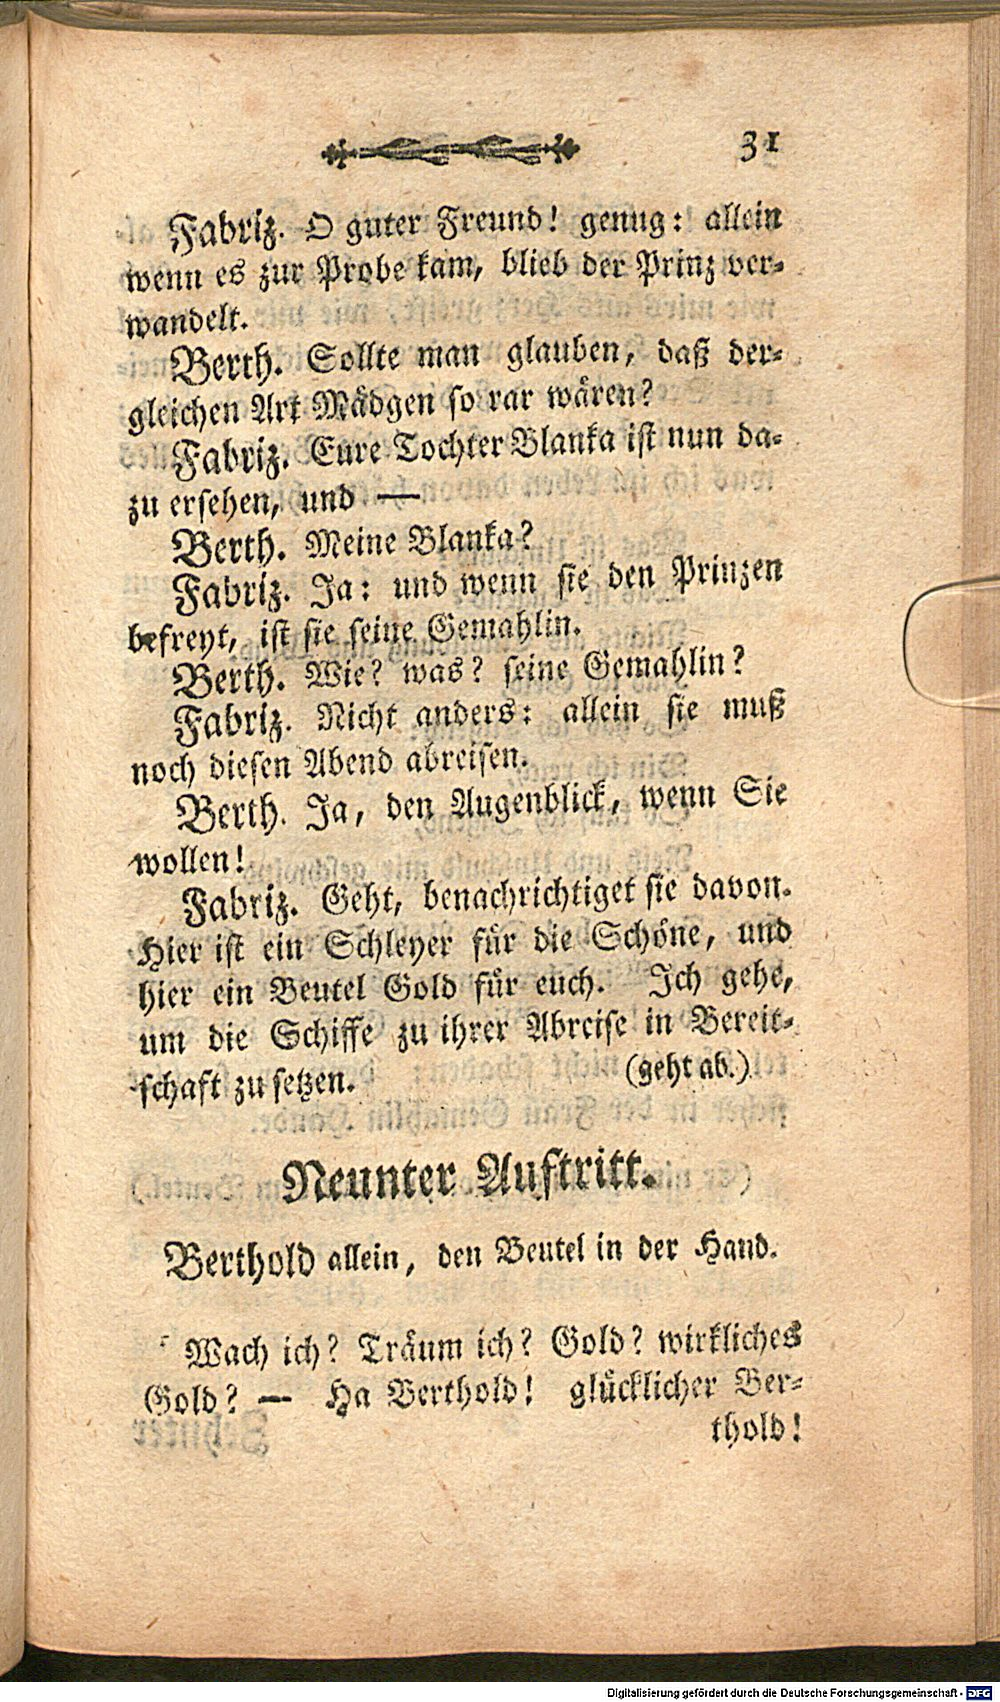 31
Fabriz. O guter Freund! genug: allein
wenn es zur Probe kam, blieb der Prinz ver-
wandelt.
Berth. Sollte man glauben, daß der-
gleichen Art Mädgen so rar wären?
Fabriz. Eure Tochter Blanka ist nun da-
zu ersehen, und —
Berth. Meine Blanka?
Fabriz. Ja: und wenn sie den Prinzen
befreyt, ist sie seine Gemahlin.
Berth. Wie? was? seine Gemahlin?
Fabriz. Nicht anders: allein sie muß
noch diesen Abend abreisen.
Berth. Ja, den Augenblick, wenn Sie
wollen!
Fabriz. Geht, benachrichtiget sie davon.
Hier ist ein Schleyer für die Schöne, und
hier ein Beutel Gold für euch. Ich gehe,
um die Schiffe zu ihrer Abreise in Bereit-
schaft zu setzen. (geht ab.)
Neunter Auftritt.
Berthold allein, den Beutel in der Hand.
Wach ich? Träum ich? Gold? wirkliches
Gold? — Ha Berthold! glücklicher Ber-
thold!
Digitalisierung gefördert durch die Deutsche Forschungsgemeinschaft - DFG